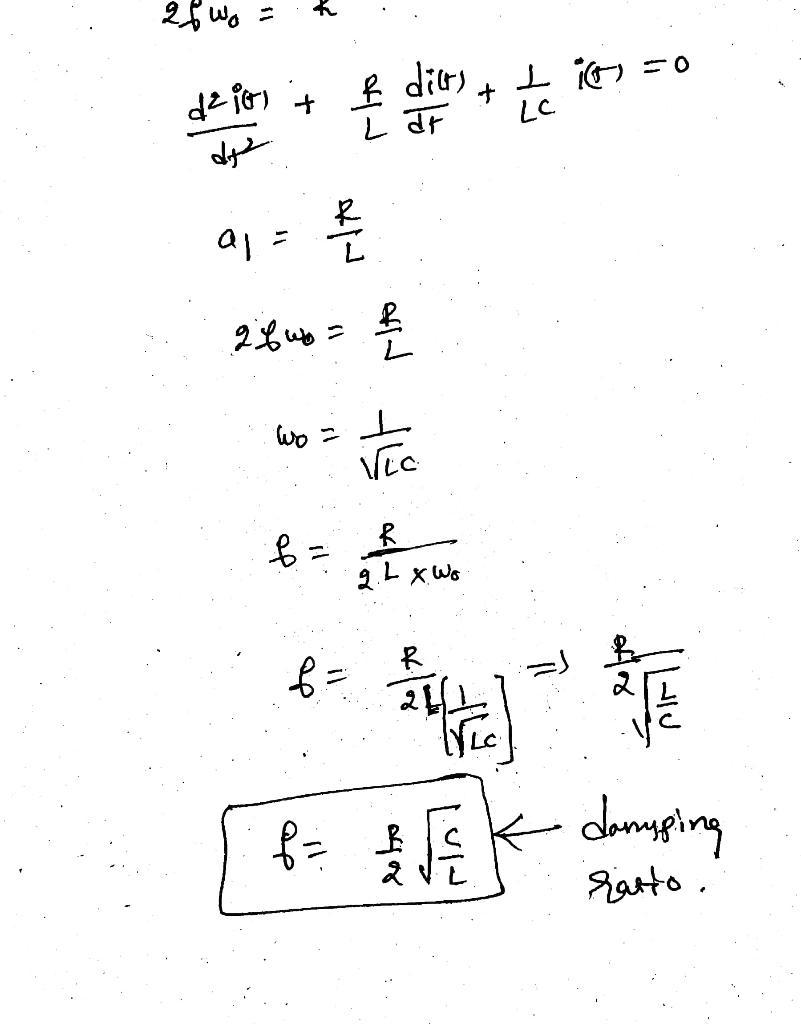 2ξω₀ = R
d²i(t)/dt² + R/L di(t)/dt + 1/LC i(t) = 0
a₁ = R/L
2ξω₀ = R/L
ω₀ = 1/√LC
ξ = R/2L×ω₀
ξ = R/2L[1/√LC] => R/2√(L/C)
ξ = R/2 √(C/L) ← damping
ratio.